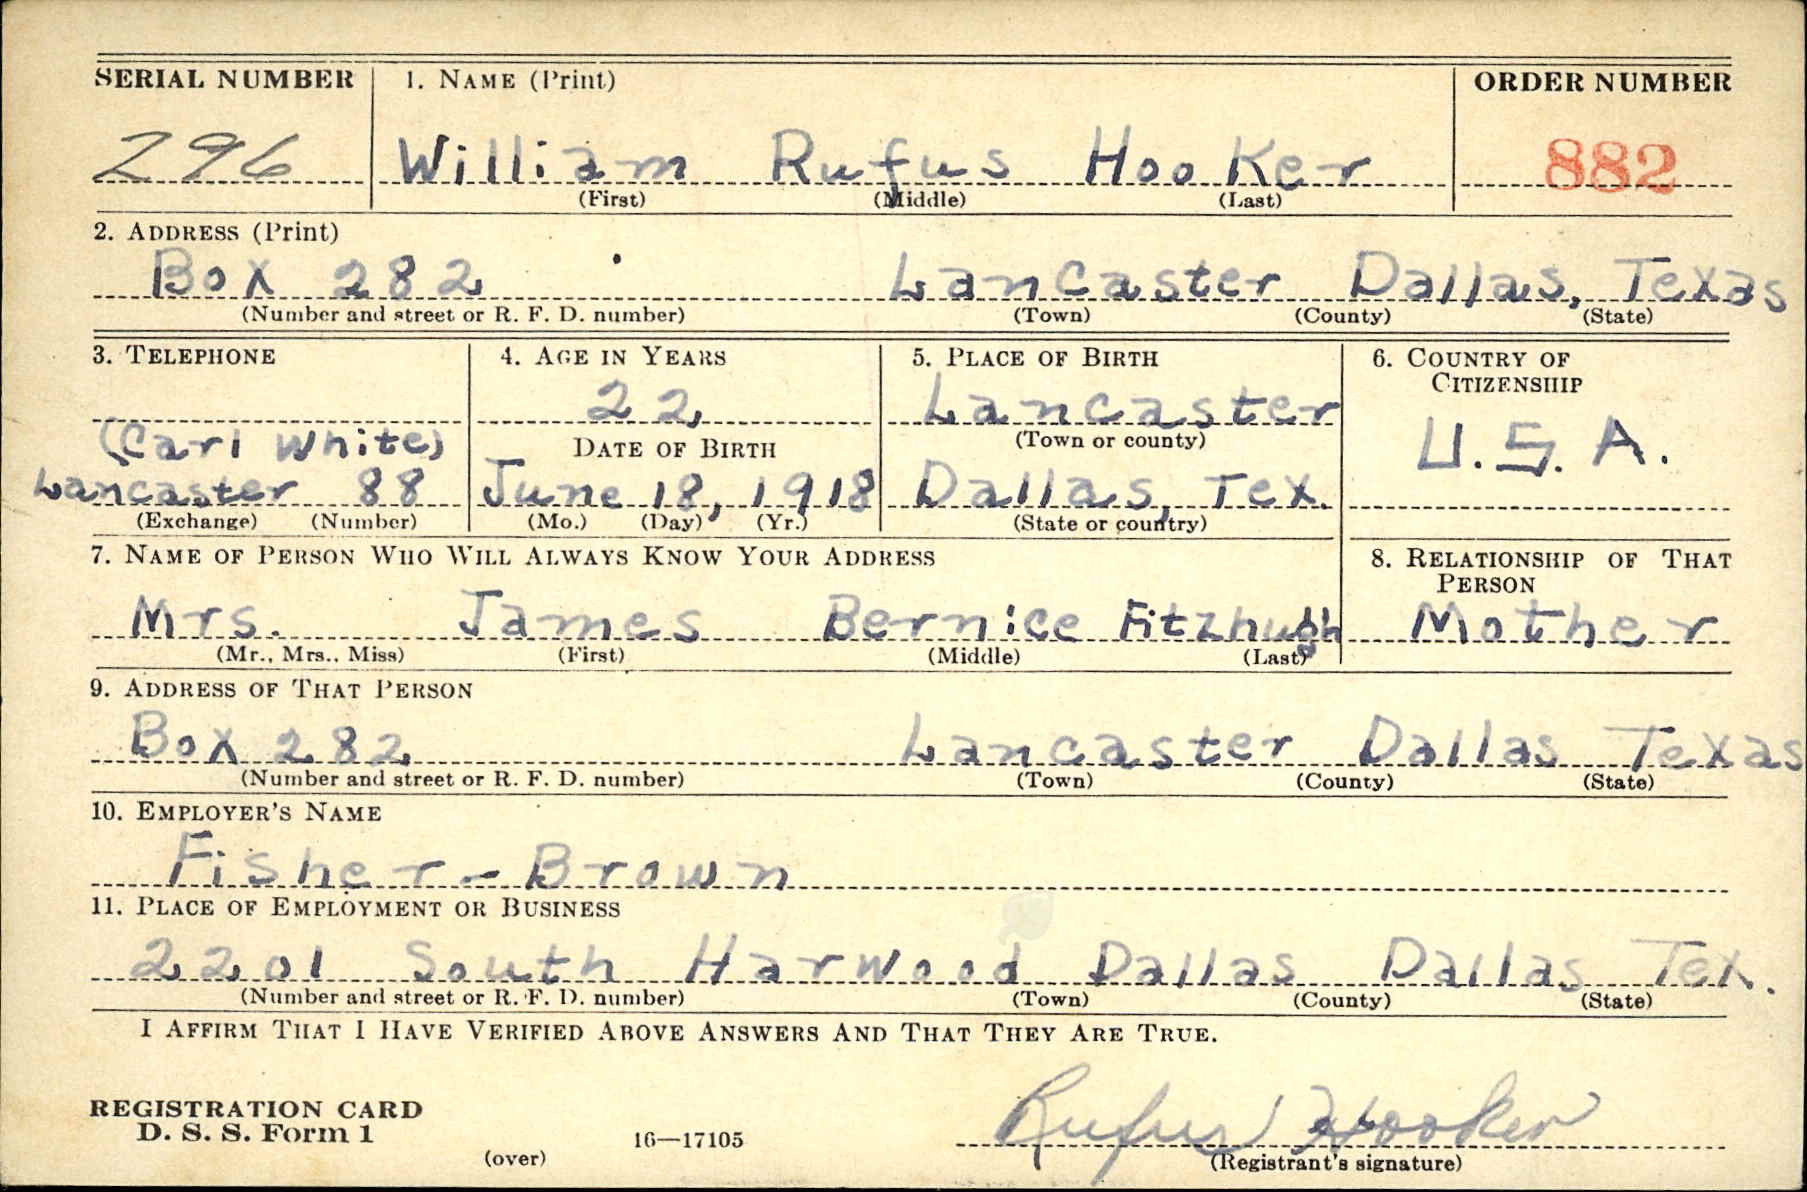 SERIAL NUMBER 1. NAME (Print) ORDER NUMBER
296 William Rufus Hooker 882
(First) (Middle) (Last)
2. ADDRESS (Print)
Box 282 Lancaster Dallas, Texas
(Number and street or R. F. D. number) (Town) (County) (State)
3. TELEPHONE 4. AGE IN YEARS 5. PLACE OF BIRTH 6. COUNTRY OF
CITIZENSHIP
22 Lancaster
(Carl White) DATE OF BIRTH (Town or county) U.S.A.
Lancaster 88 June 18, 1918 Dallas, Tex.
(Exchange) (Number) (Mo.) (Day) (Yr.) (State or country)
7. NAME OF PERSON WHO WILL ALWAYS KNOW YOUR ADDRESS 8. RELATIONSHIP OF THAT
PERSON
Mrs. James Bernice Fitzhugh Mother
(Mr., Mrs., Miss) (First) (Middle) (Last)
9. ADDRESS OF THAT PERSON
Box 282 Lancaster Dallas Texas
(Number and street or R. F. D. number) (Town) (County) (State)
10. EMPLOYER'S NAME
Fisher - Brown
11. PLACE OF EMPLOYMENT OR BUSINESS
2201 South Harwood Dallas Dallas Tex.
(Number and street or R. F. D. number) (Town) (County) (State)
I AFFIRM THAT I HAVE VERIFIED ABOVE ANSWERS AND THAT THEY ARE TRUE.
REGISTRATION CARD
D. S. S. Form 1 16—17105 Rufus Hooker
(over) (Registrant's signature)